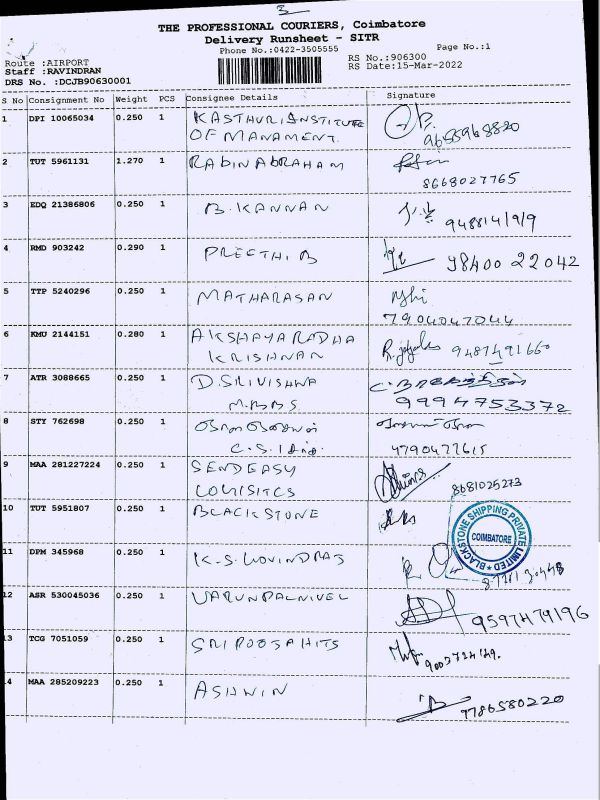 3
THE PROFESSIONAL COURIERS, Coimbatore
Delivery Runsheet - SITR
Phone No.:0422-3505555 Page No.:1
Route :AIRPORT RS No.:906300
Staff :RAVINDRAN RS Date:15-Mar-2022
DRS No. :DCJB90630001
S No Consignment No Weight PCS Consignee Details Signature
1 DPI 10065034 0.250 1 KASTHURI INSTITUTE
OF MANAMENT 9655968820
2 TUT 5961131 1.270 1 RABIN ABRAHAM
8668027765
3 EDQ 21386806 0.250 1 B.KANNAN
9488141919
4 RMD 903242 0.290 1 PREETHI.B 98400 22042
5 TTP 5240296 0.250 1 MATHARASAN
7904047044
6 KMU 2144151 0.280 1 AKSHAYA RADHA
KRISHNAN 9487491660
7 ATR 3088665 0.250 1 D.SRIVISHWA
M.BBS 9994753372
8 STY 762698 0.250 1
4790477615
9 MAA 281227224 0.250 1 SENDEASY
LOGISITCS 8681025273
10 TUT 5951807 0.250 1 BLACKSTONE
BLACKSTONE SHIPPING PRIVATE LIMITED
COIMBATORE
11 DPM 345968 0.250 1 K.S.GOVINDRAJ
12 ASR 530045036 0.250 1 VARUNPALNIVEL
9597479196
13 TCG 7051059 0.250 1 SRI POOJA HITS
14 MAA 285209223 0.250 1 ASHWIN
9786580220